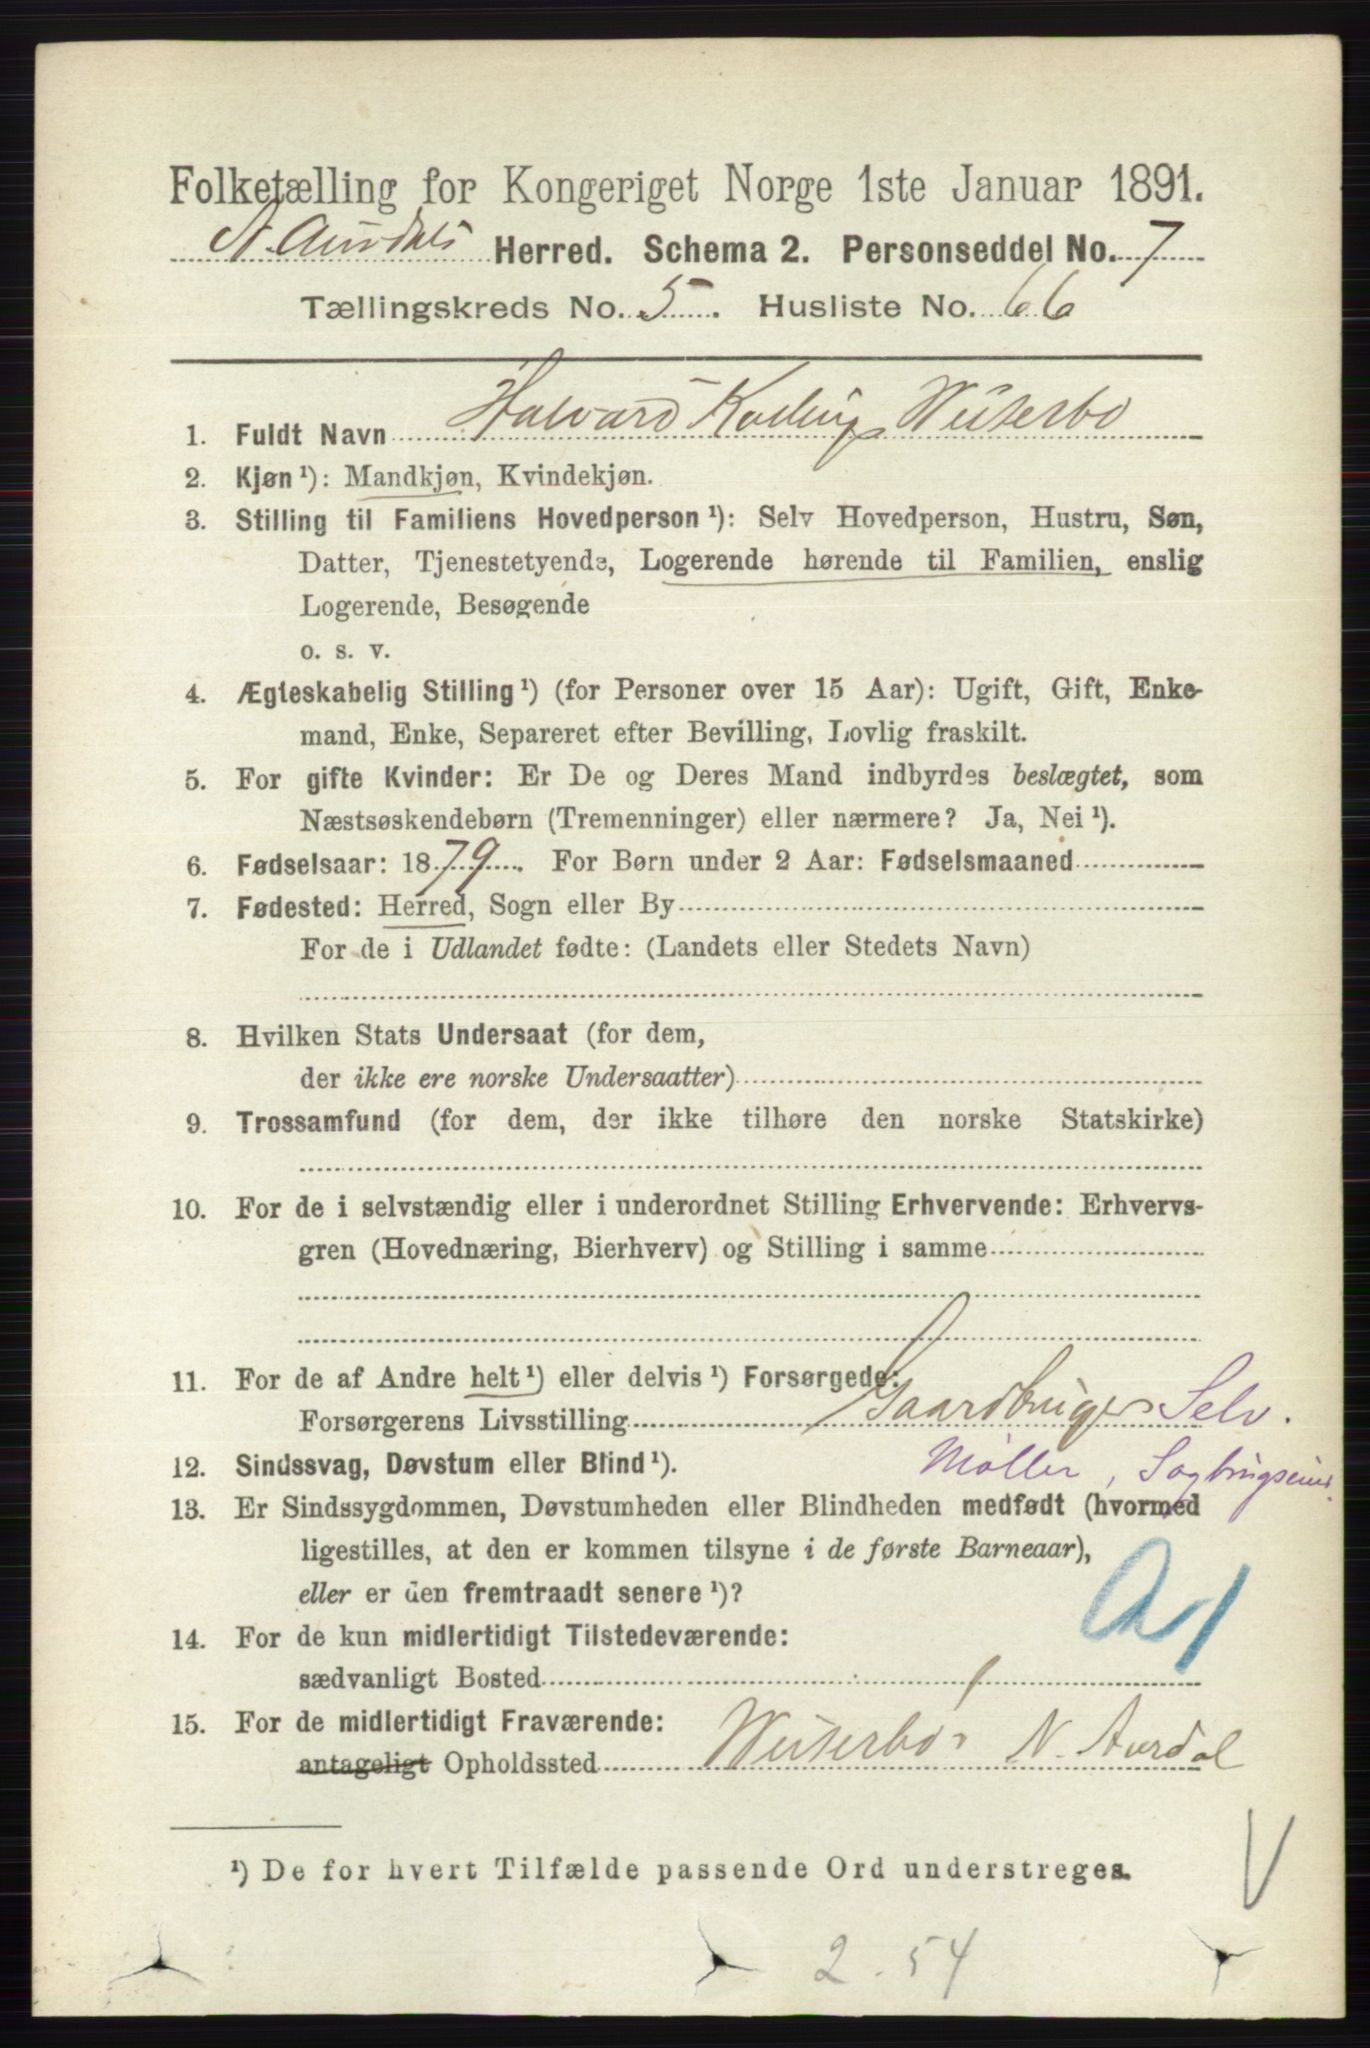 Folketælling for Kongeriget Norge 1ste Januar 1891.
N. Aurdals Herred. Schema 2. Personseddel No. 7
Tællingskreds No. 5. Husliste No. 66
1. Fuldt Navn Halvard Wisterbo
2. Kjøn ¹): Mandkjøn, Kvindekjøn.
3. Stilling til Familiens Hovedperson ¹): Selv Hovedperson, Hustru, Søn,
Datter, Tjenestetyende, Logerende hørende til Familien, enslig
Logerende, Besøgende
o. s. v.
4. Ægteskabelig Stilling ¹) (for Personer over 15 Aar): Ugift, Gift, Enke-
mand, Enke, Separeret efter Bevilling, Lovlig fraskilt.
5. For gifte Kvinder: Er De og Deres Mand indbyrdes beslægtet, som
Næstsøskendebørn (Tremenninger) eller nærmere? Ja, Nei ¹).
6. Fødselsaar: 1879. For Børn under 2 Aar: Fødselsmaaned
7. Fødested: Herred, Sogn eller By
For de i Udlandet fødte: (Landets eller Stedets Navn)
8. Hvilken Stats Undersaat (for dem,
der ikke ere norske Undersaatter)
9. Trossamfund (for dem, der ikke tilhøre den norske Statskirke)
10. For de i selvstændig eller i underordnet Stilling Erhvervende: Erhvervs-
gren (Hovednæring, Bierhverv) og Stilling i samme
11. For de af Andre helt ¹) eller delvis ¹) Forsørgede:
Forsørgerens Livsstilling Gaardbruger Selv.
12. Sindssvag, Døvstum eller Blind ¹). Møller,
13. Er Sindssygdommen, Døvstumheden eller Blindheden medfødt (hvormed
ligestilles, at den er kommen tilsyne i de første Barneaar),
eller er den fremtraadt senere ¹)?
14. For de kun midlertidigt Tilstedeværende:
sædvanligt Bosted
15. For de midlertidigt Fraværende:
antageligt Opholdssted Wisterbo N. Aurdal
¹) De for hvert Tilfælde passende Ord understreges.
V
2. 54